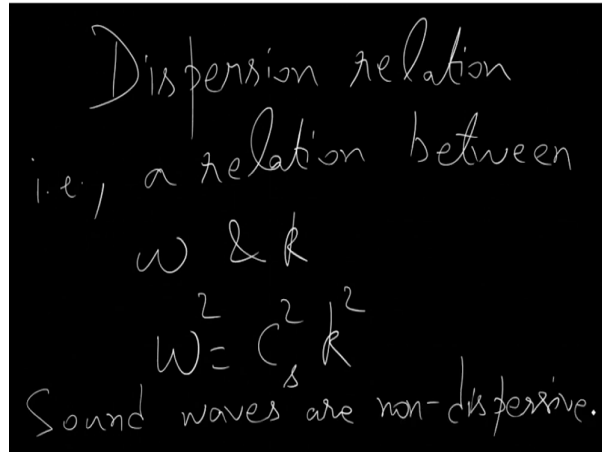 Dispersion relation
i.e., a relation between
ω & k
ω² = C_s² k²
Sound waves are non-dispersive.